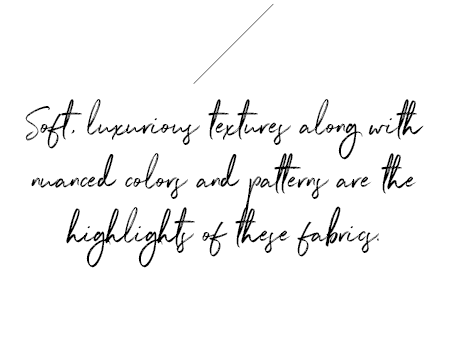 Soft, luxurious textures along with
nuanced colors and patterns are the
highlights of these fabrics.